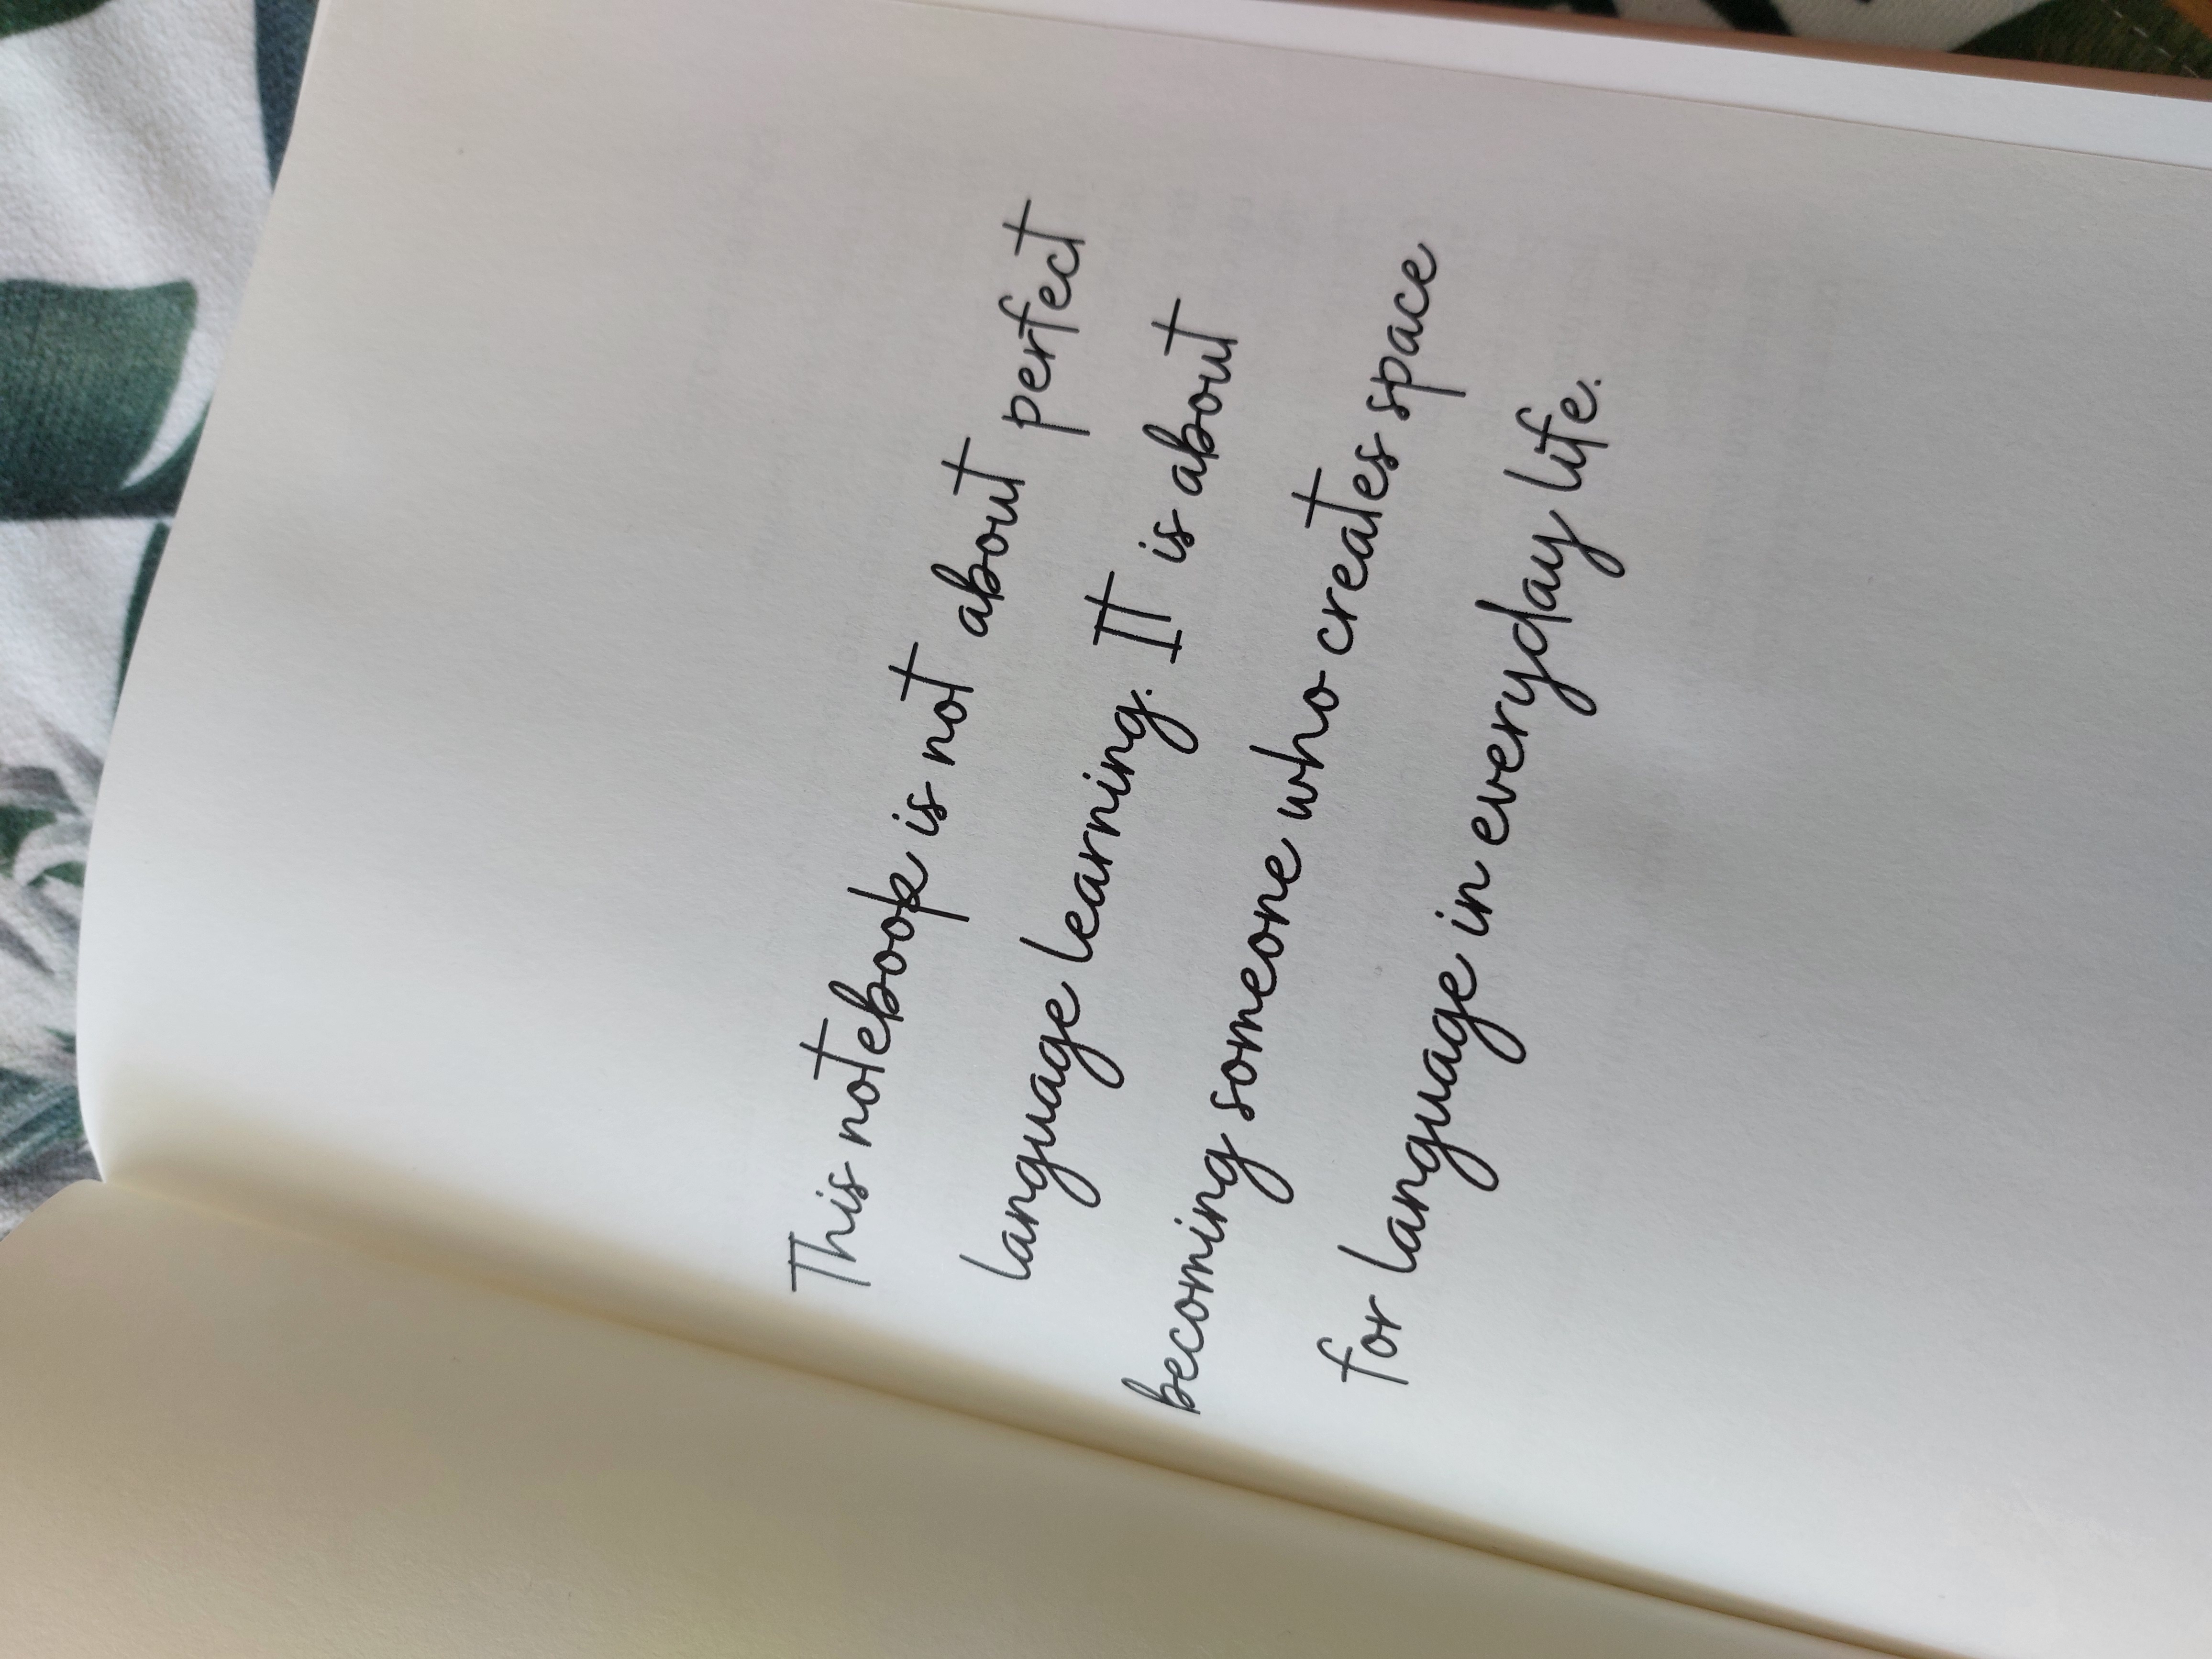 This notebook is not about perfect
language learning. It is about
becoming someone who creates space
for language in everyday life.